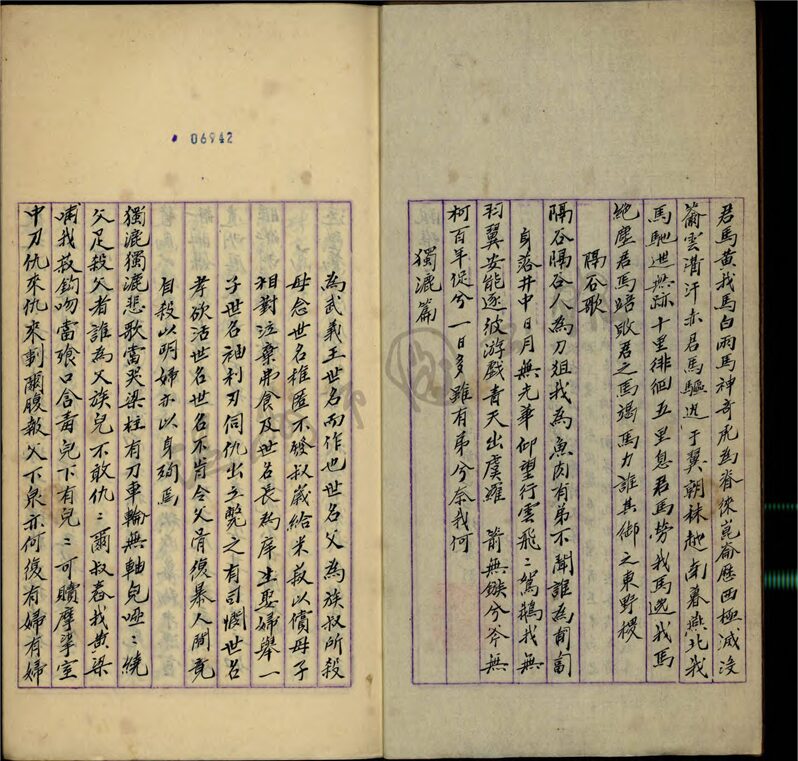 君馬黃我馬白兩馬神奇虎為脊倈崑崙歷西極滅沒
浮雲瀋汗赤君馬驅兆于冀朝秣越南暮燕北我
馬馳迸無跡十里徘徊五里息君馬勞我馬逸我馬
絕塵君馬踣敗君之馬竭馬力誰其御之東野稷
隔谷歌
隔谷隔谷人為刀俎我為魚肉有弟不聞誰為
身落井中日月無光華仰望行雲飛〻鴛鵝我無
羽翼安能逐彼游戲青天出虞羅 箭無鏃兮斧無
柯百年促兮一日多雖有弟兮奈我何
獨漉篇
06942
為武義王世名而作也世名父為族叔所殺
母念世名稚匿不發叔歲給米菽以償母子
相對泣棄弗食及世名長為庠生娶婦舉一
子世名袖利刃伺仇出立斃之有司憫世名
孝欲活世名世名不肯令父骨復暴人間竟
自殺以明婦亦以身殉焉
獨漉獨漉悲歌當哭梁柱有刀車輪無軸兒啞〻繞
父足殺父者誰為父族兒不敢仇〻爾叔舂我黃粱
哺我菽鉤吻當飧口含毒兒下有兒〻可贖摩挲室
中刀仇來仇來剚爾腹報父下泉亦何復有婦有婦